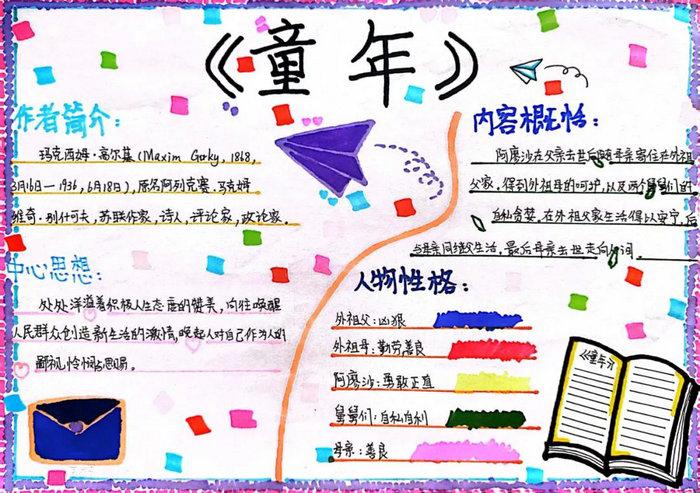 《童年》
作者简介：
玛克西姆·高尔基(Maxim Gorky, 1868,
3月16日—1936,6月18日),原名阿列克塞.马克姆
维奇.别什可夫,苏联作家,诗人,评论家,政论家.
中心思想：
处处洋溢着积极人生态度的赞美,向往唤醒
人民群众创造新生活的激情,唤起人对自己作为人的
鄙视,怜悯与思汤。
内容概括：
阿廖沙在父亲去世后随母亲寄住在外祖
父家,得到外祖母的呵护,以及两个舅舅们的
自私贪婪.在外祖父家生活得以安宁,后
与母亲同继父生活,最后母亲去世走向人间.
人物性格：
外祖父:凶狠
外祖母:勤劳善良
阿廖沙:勇敢正直
舅舅们:自私自利
母亲:善良
《童年》